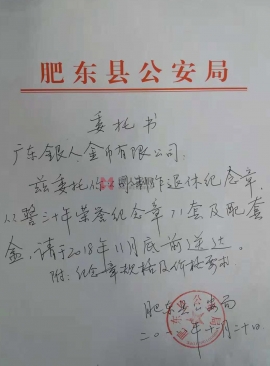 肥东县公安局
委托书
广东银人金币有限公司:
兹委托你 制作退休纪念章,
从警三十年荣誉纪念章71套及配套
盒,请于2018年11月底前送达。
附:纪念章规格及价格要求
肥东县公安局
二〇一八年十月二十日